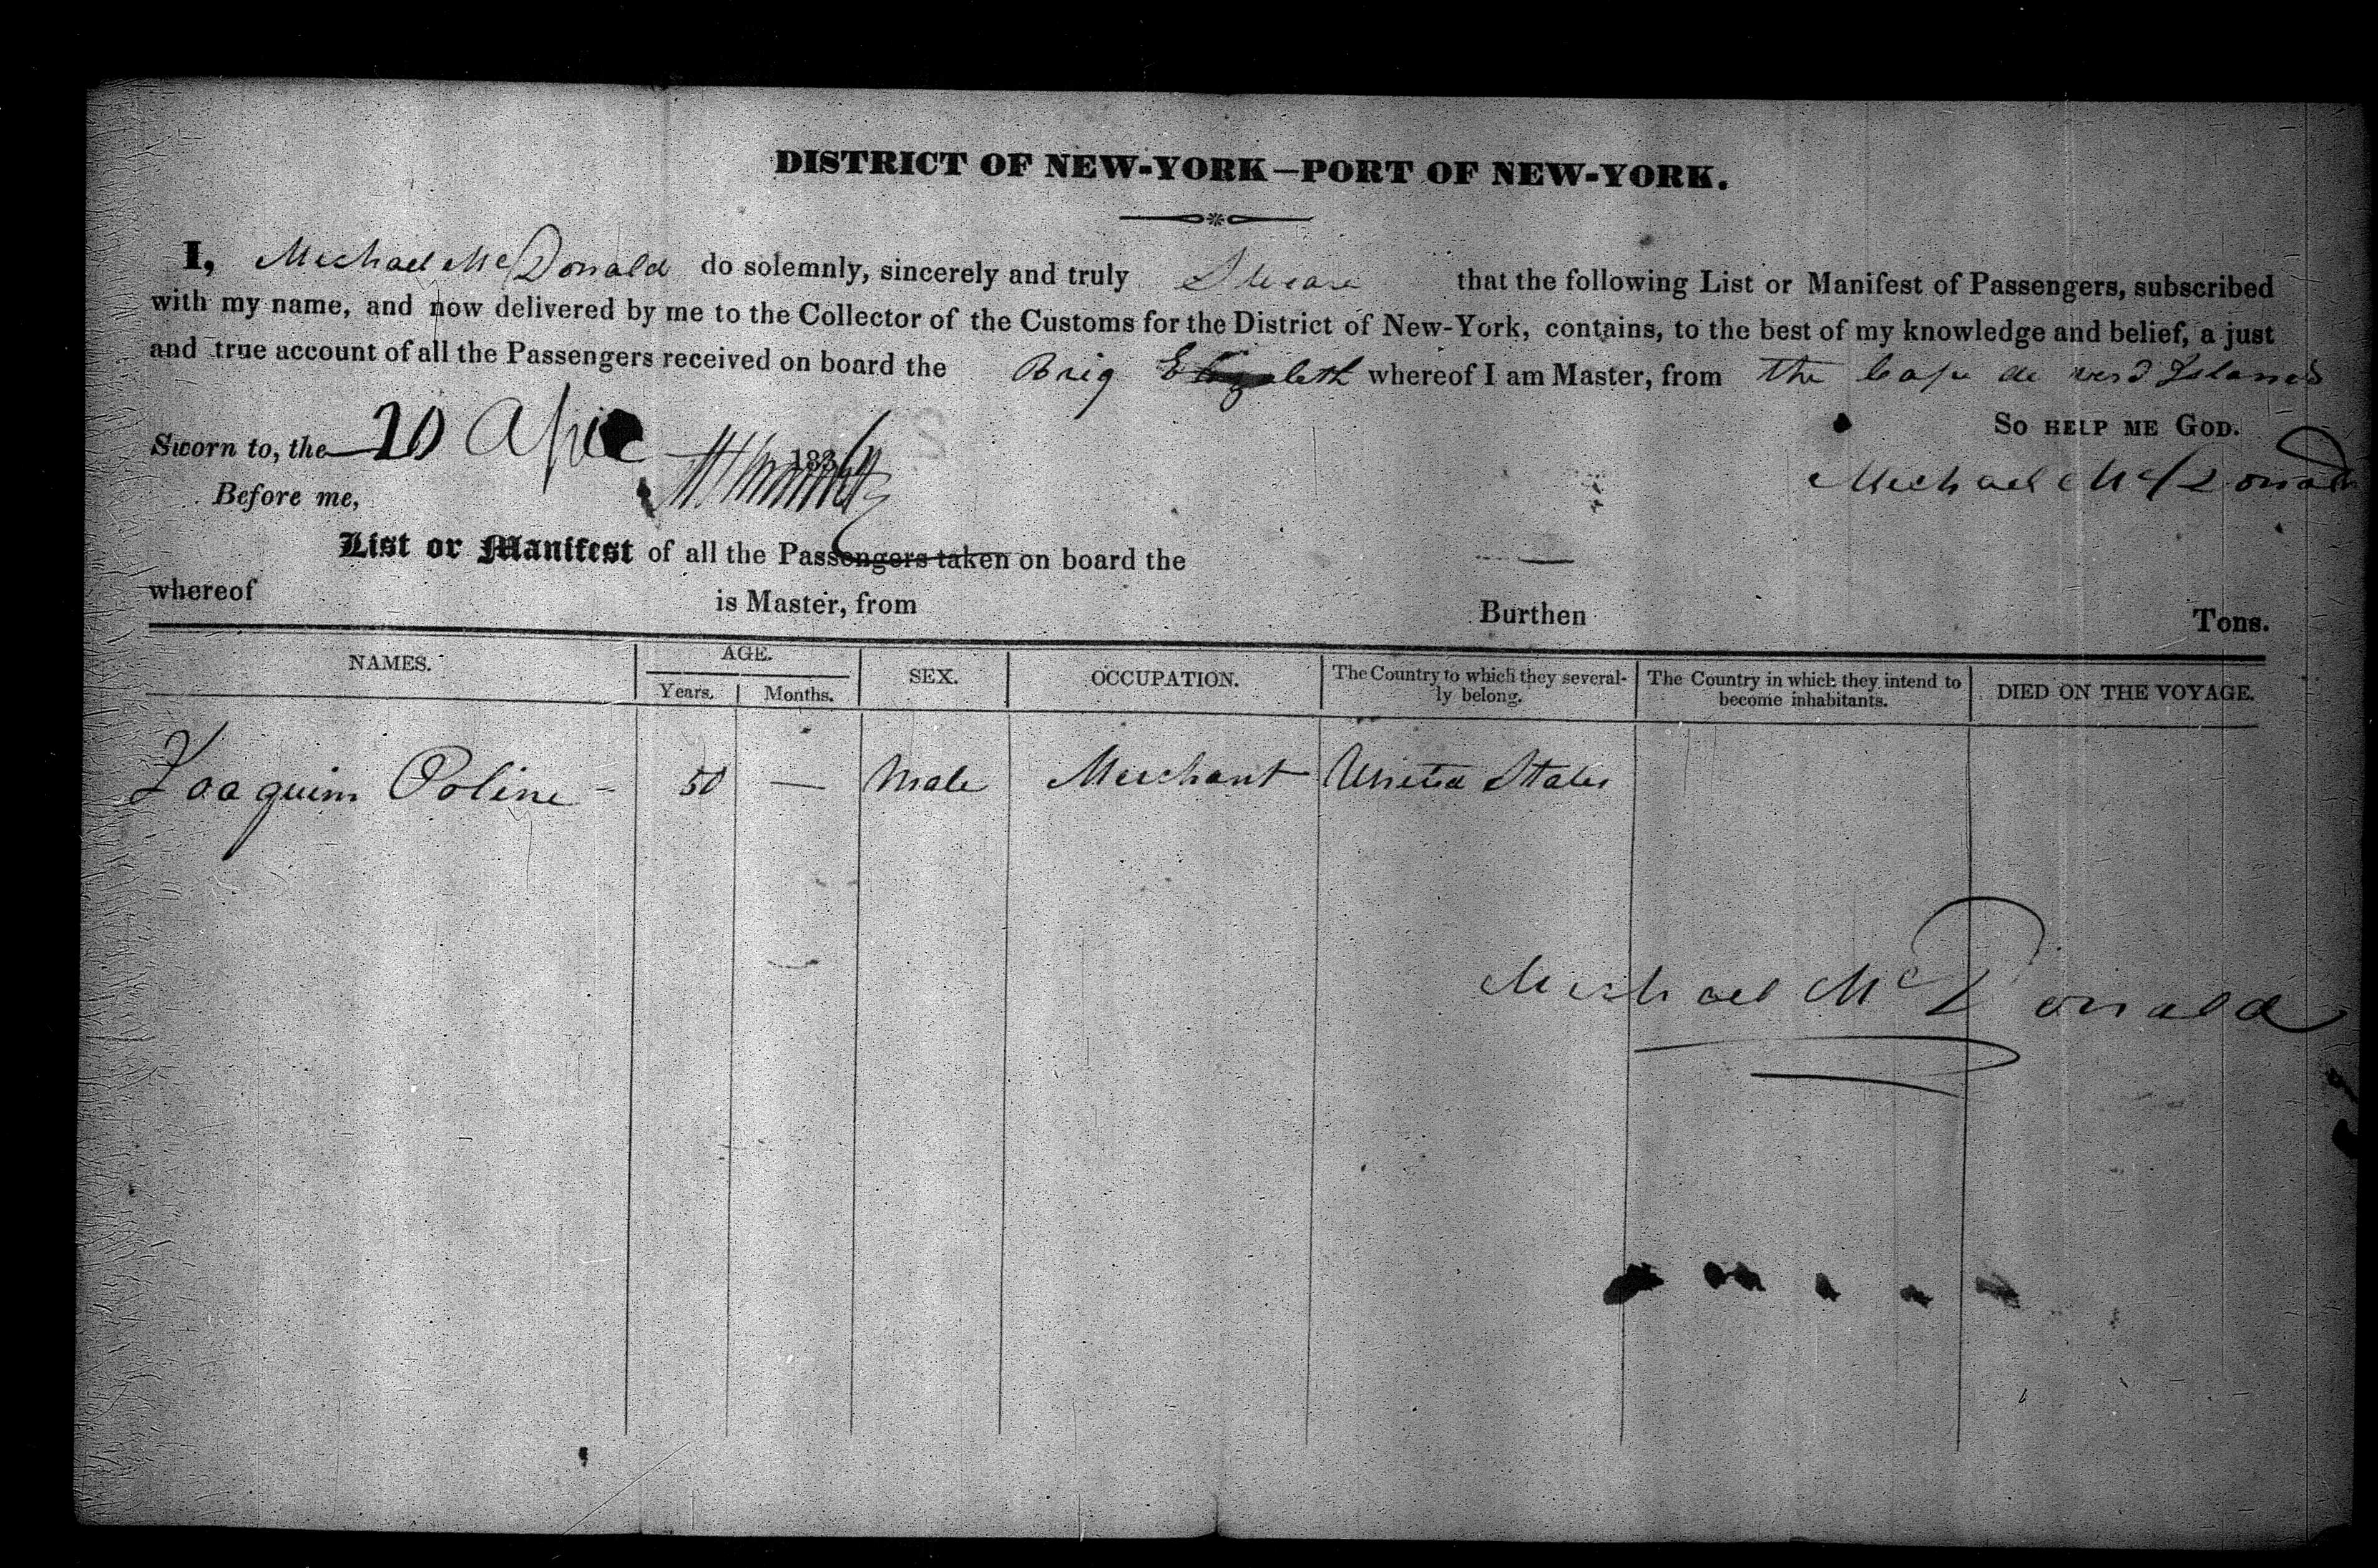 DISTRICT OF NEW-YORK—PORT OF NEW-YORK.
I, Michael McDonald do solemnly, sincerely and truly Sweare that the following List or Manifest of Passengers, subscribed
with my name, and now delivered by me to the Collector of the Customs for the District of New-York, contains, to the best of my knowledge and belief, a just
and true account of all the Passengers received on board the Brig Elizabeth whereof I am Master, from the Cape de verd Islands
So HELP ME GOD.
Sworn to, the 20 April 183
Michael McDonald
Before me,
List or Manifest of all the Passengers taken on board the
whereof is Master, from Burthen Tons.
NAMES. AGE. SEX. OCCUPATION. The Country to which they several- The Country in which they intend to DIED ON THE VOYAGE.
Years. Months. ly belong. become inhabitants.
Joaquim Poline - 50 — Male Merchant United States
Michael McDonald